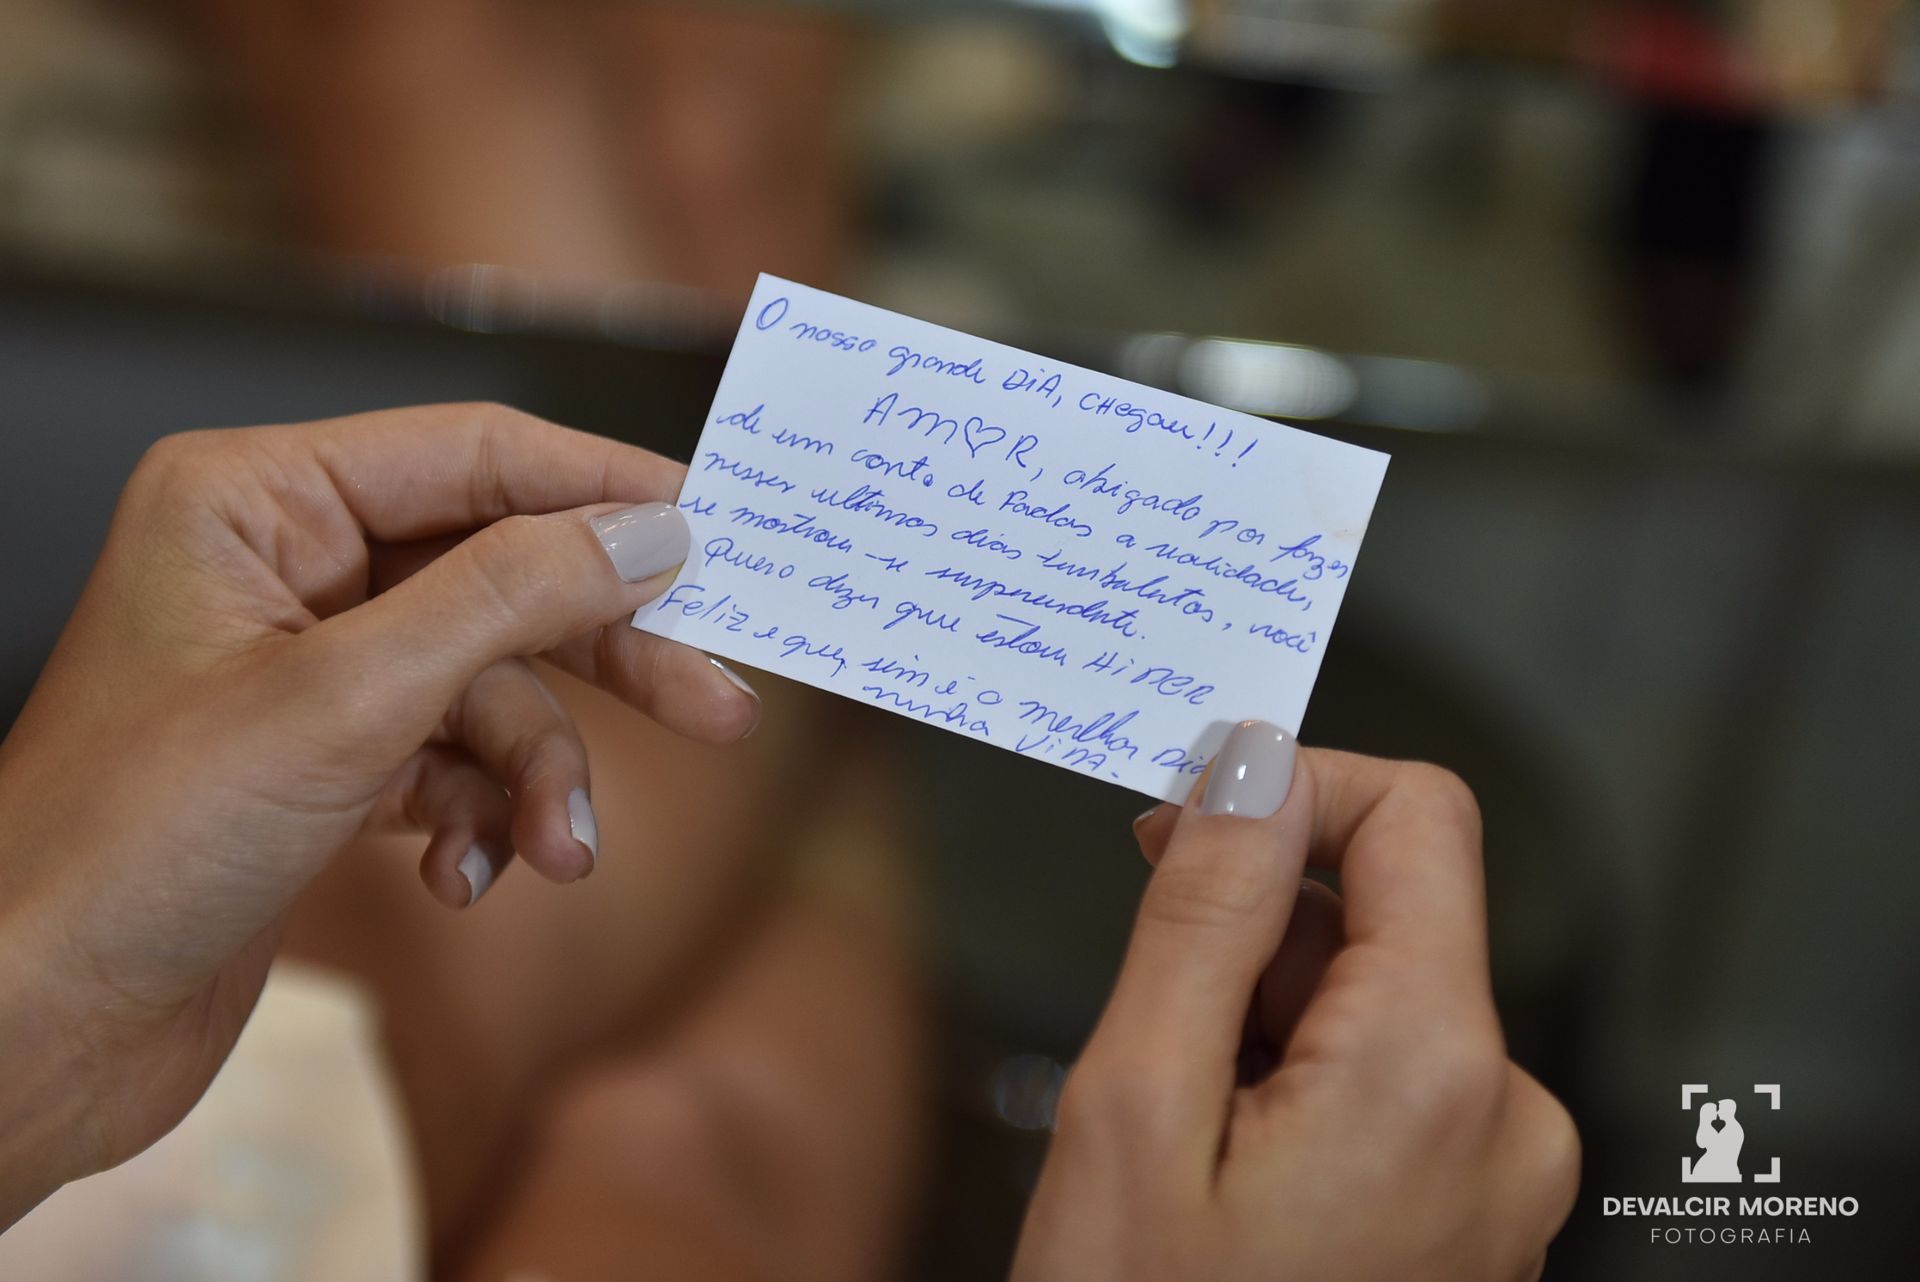 O nosso grande DiA, CHegou!!!
AM♡R, obrigado por fazer
de um conto de Fadas a realidade,
nesses ultimos dias turbulentos, você
se mostrou-se surpreendente.
Quero dizer que estou HiPER
Feliz e que, sim é o melhor Dia
minha ViDA.
DEVALCIR MORENO
FOTOGRAFIA